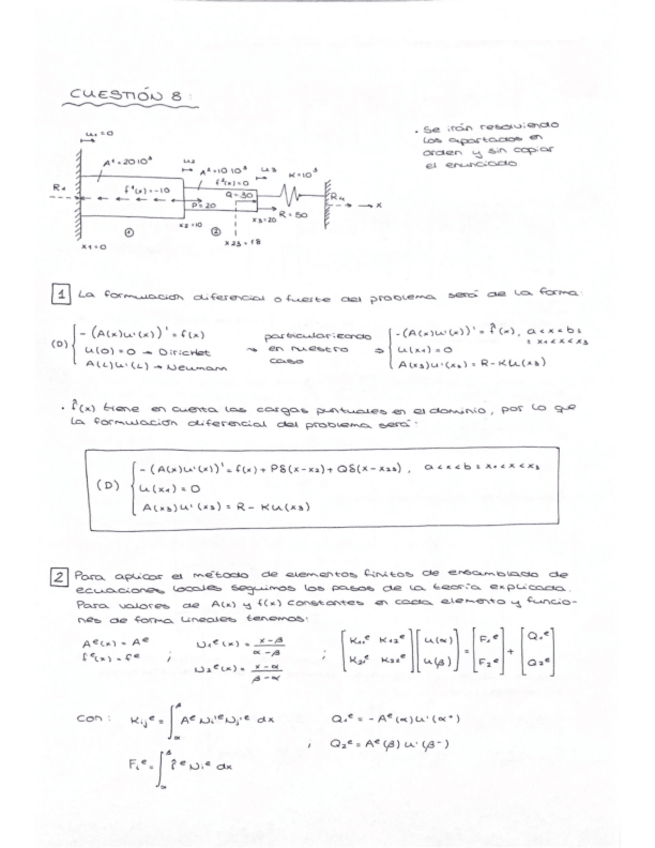 CUESTIÓN 8:
· Se irán resolviendo
los apartados en
orden y sin copiar
el enunciado
u₁=0
A¹=20·10³
u₂
A²=10·10³
u₃
K=10³
f¹(x)=-10
f²(x)=0
Q=30
P=20
R₄
→ x
x₂=10
x₃=20
R=50
① ②
x₁=0
x₂₃=18
1 La formulación diferencial o fuerte del problema será de la forma:
(D) { -(A(x)u'(x))' = f(x)
u(0)=0 → Dirichlet
A(L)u'(L) → Neumann
particularizando
→ en nuestro ⇒
caso
{ -(A(x)u'(x))' = f̂(x), a<x<b ≡
≡ x₁<x<x₃
u(x₁)=0
A(x₃)u'(x₃) = R-Ku(x₃)
· f̂(x) tiene en cuenta las cargas puntuales en el dominio, por lo que
la formulación diferencial del problema será:
(D) { -(A(x)u'(x))' = f(x) + Pδ(x-x₂) + Qδ(x-x₂₃), a<x<b ≡ x₁<x<x₃
u(x₁)=0
A(x₃)u'(x₃) = R-Ku(x₃)
2 Para aplicar el método de elementos finitos de ensamblado de
ecuaciones locales seguimos los pasos de la teoría explicada.
Para valores de A(x) y f(x) constantes en cada elemento y funcio-
nes de forma lineales tenemos:
Aᵉ(x) = Aᵉ
fᵉ(x) = fᵉ ;
N₁ᵉ(x) = (x-β)/(α-β)
N₂ᵉ(x) = (x-α)/(β-α) ;
[K₁₁ᵉ K₁₂ᵉ] [u(α)] = [F₁ᵉ] + [Q₁ᵉ]
[K₂₁ᵉ K₂₂ᵉ] [u(β)] [F₂ᵉ] [Q₂ᵉ]
con: Kᵢⱼᵉ = ∫_α^β AᵉNᵢ'ᵉNⱼ'ᵉ dx
Q₁ᵉ = -Aᵉ(α)u'(α⁺)
; Q₂ᵉ = Aᵉ(β)u'(β⁻)
Fᵢᵉ = ∫_α^β f̂ᵉNᵢᵉ dx